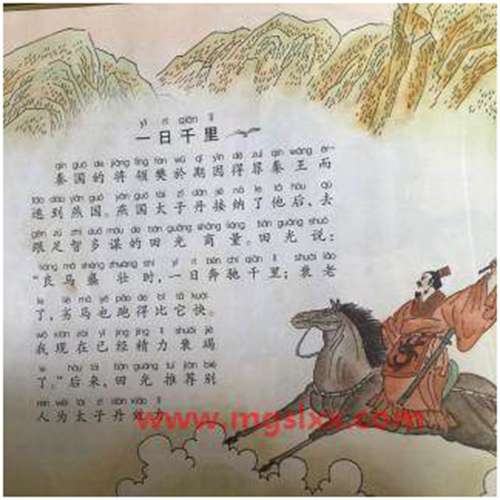 yí rì qiān lǐ
一日千里
qín guó de jiàng lǐng fán wū qī yīn dé zuì qín wáng ér
秦国的将领樊於期因得罪秦王而
táo dào yān guó yān guó tài zǐ dān jiē nà le tā hòu qù
逃到燕国。燕国太子丹接纳了他后,去
gēn zú zhì duō móu de tián guāng shāng liáng tián guāng shuō
跟足智多谋的田光商量。田光说:
liáng mǎ shèng zhuàng shí yí rì bēn chí qiān lǐ shuāi lǎo
“良马盛壮时,一日奔驰千里;衰老
le liè mǎ yě pǎo de bǐ tā kuài
了,劣马也跑得比它快。
wǒ xiàn zài yǐ jīng jīng lì shuāi jié
我现在已经精力衰竭
le hòu lái tián guāng tuī jiàn bié
了。”后来,田光推荐别
rén wèi tài zǐ dān xiào lì
人为太子丹效力
www.mgslxx.com